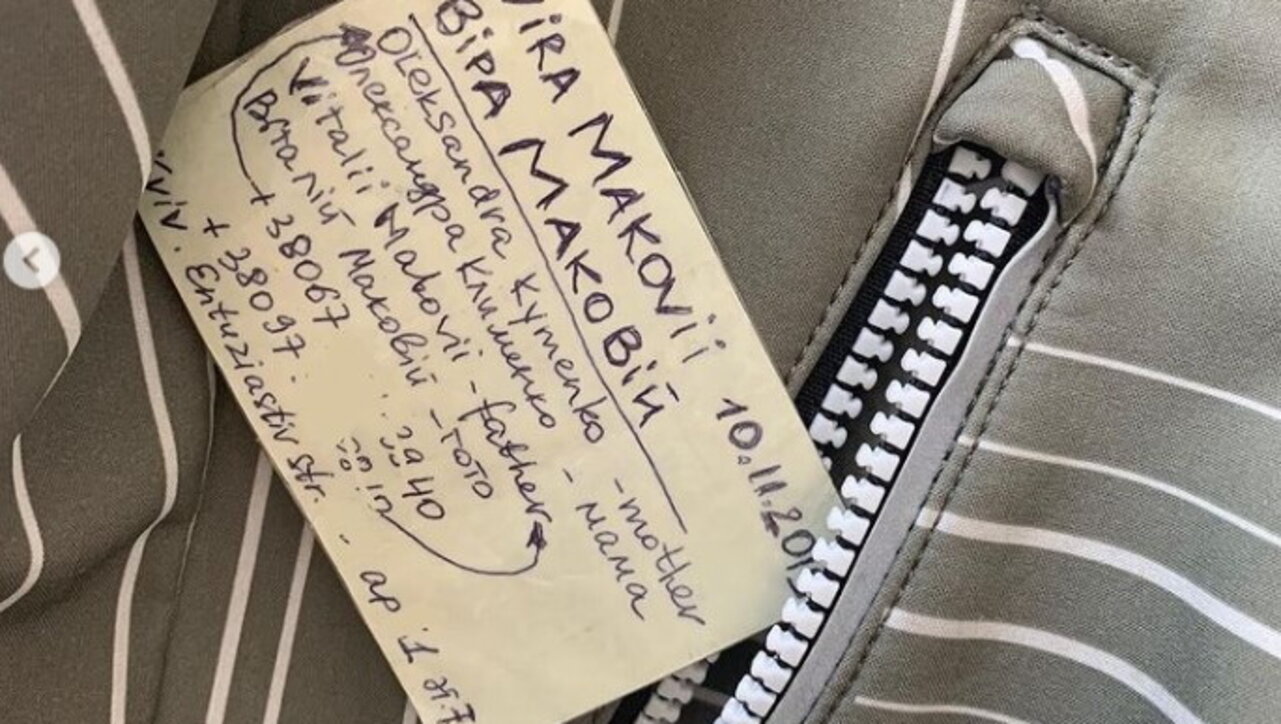 VIRA MAKOVII 10.11.20
ВІРА МАКОВІЙ
Oleksandra Kymenko - mother
Олександра Клименко - мама
Vitalii Makovii - father
Віталій Маковій - тото
+38067 40
+38097
Kyiv. Entuziastiv str. - ap